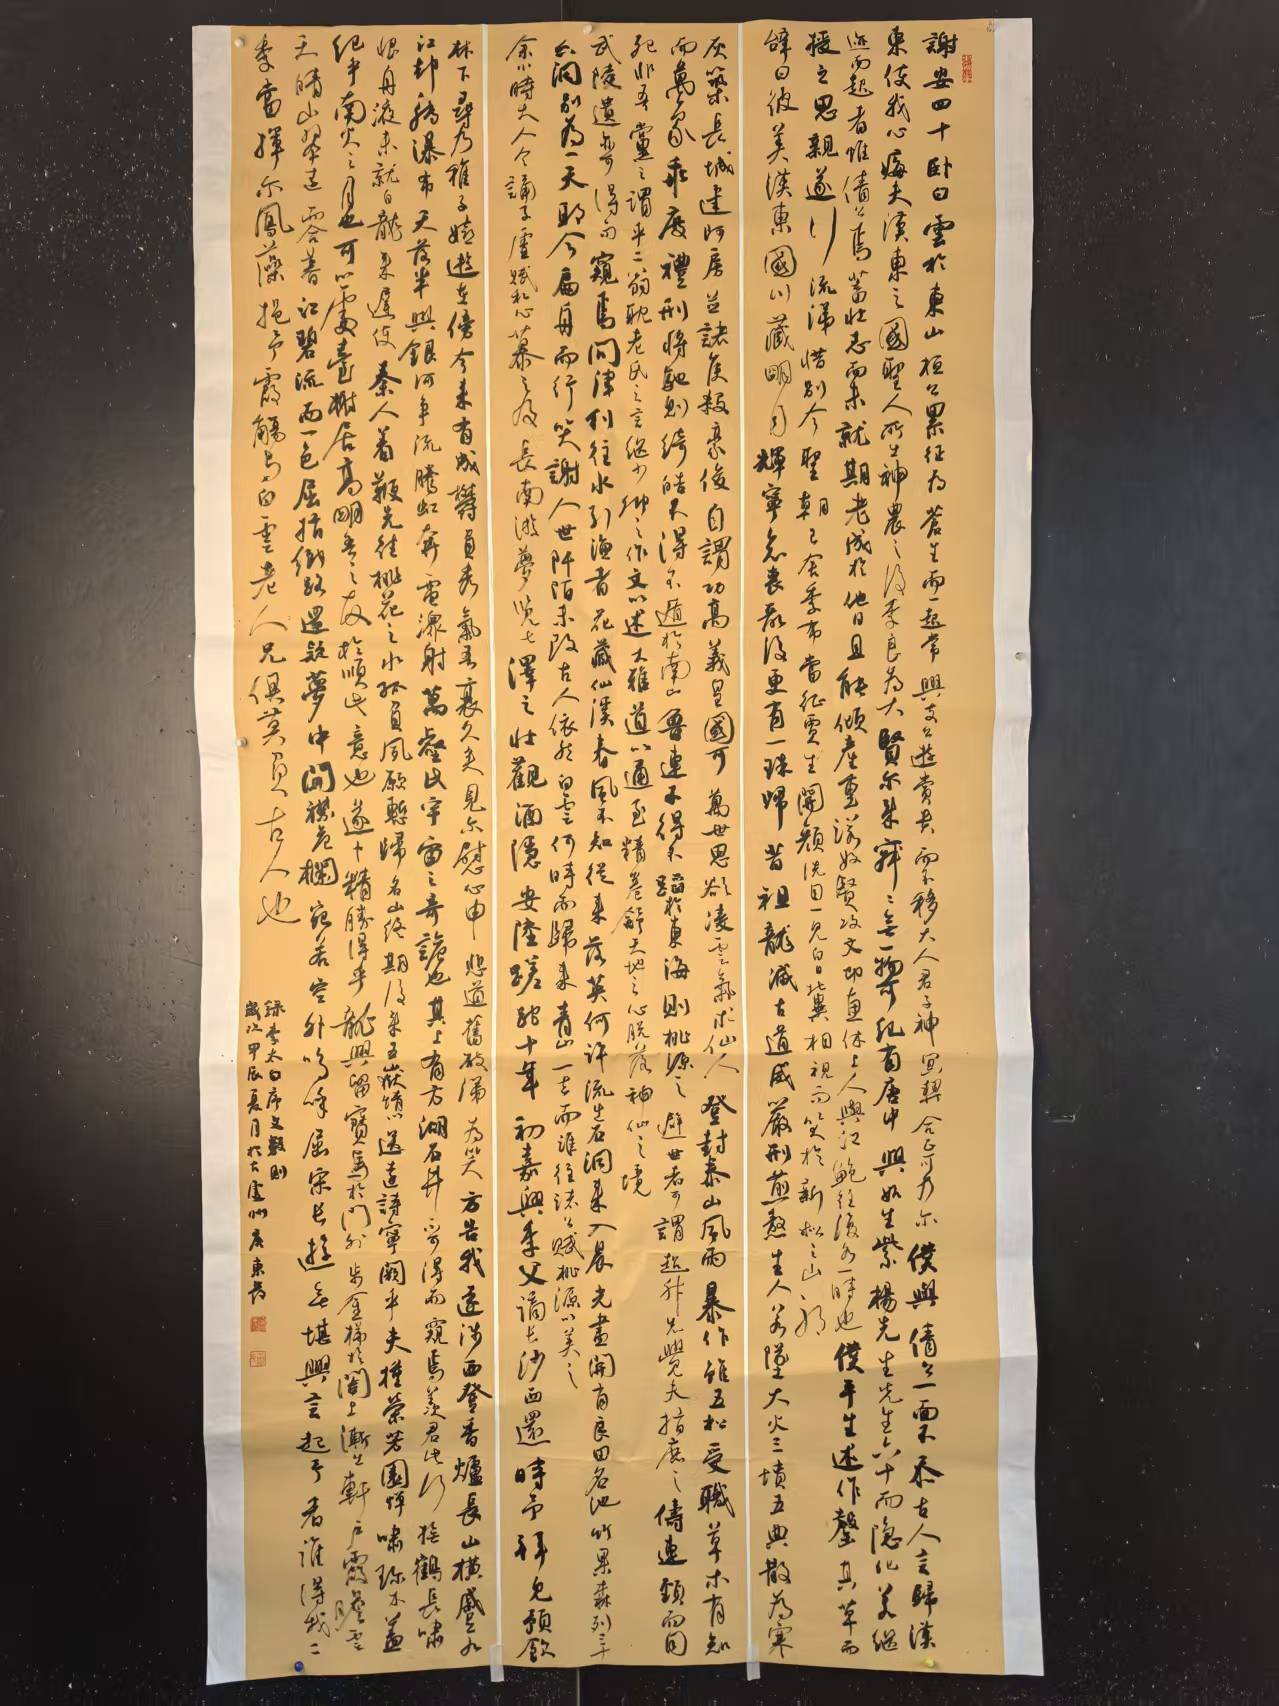 謝安四十卧白雲於東山桓公累征為蒼生而一起常與支公遊賞貴而不移大人君子神冥契合正可乃尔僕與倩公一面不忝古人言歸漢
東使我心痗夫漢東之國聖人所出神農之後季良為大賢尔來寂寂無一物可紀有唐中興始生紫楊先生先生六十而隱化若繼
迹而起者惟倩公焉蓄壯志而未就期老成於他日且能傾産重諾好賢攻文即惠休上人與江鮑往復各一時也僕平生述作罄其草而
授之思親遂行流涕惜别今聖朝已舍季布當征賈生開顔洗目一見白日冀相視而笑於新松之山耶
辞曰彼美漢東國川藏明月輝寧知喪亂後更有一珠歸昔祖龍滅古道威嚴刑煎熬生人若墜大火三墳五典散為寒
灰築長城建阿房並諸侯殺豪俊自謂功高羲皇國可萬世思欲凌雲氣求仙人登封泰山風雨暴作雖五松受職草木有知
而萬象乖度禮刑將弛則綺皓不得不遁於南山魯連不得不蹈於東海則桃源之避世者可謂超升先覺夫指鹿之儔連頸而同
死非吾黨之謂乎二翁耽老氏之言繼少卿之作文以述大雅道以通至精卷舒天地之心脱落神仙之境
武陵遺迹可得而窺焉問津利往水引漁者花藏仙溪春風不知從來落英何許流出石洞來入晨光盡開有良田名池竹果森列三十
六洞别為一天耶今扁舟而行笑謝人世阡陌未改古人依然白雲何時而歸來青山一去而誰往諸公賦桃源以美之
余小時大人令誦子虛賦私心慕之及長南遊夢览七澤之壯觀酒隱安陸蹉跎十年初嘉興季父謫長沙西還時予拜見預飲
林下尋乃稚子嬉遊在傍今来有成鬱負秀氣吾衰久矣見尔慰心申悲道舊破涕為笑方告我遠涉西登香爐長山橫蹙九
江却轉瀑布天落半與銀河爭流騰虹奔電潈射萬壑此宇宙之奇詭也其上有方湖石井不可得而窺焉羡君此行撫鶴長嘯
恨丹液未就白龍来遲使秦人着鞭先往桃花之水孤負夙願慙歸名山終期後来五嶽情以送遠詩寧闕乎夫槿榮芳園蟬嘯珍木蓋
紀乎南火之月也可以處臺榭居高明吾之友於順此意也遂卜精勝得乎龍興留寶馬於門外步金梯於閣上漸出軒户霞瞻雲
天晴山翠遠而合暮江碧流而一色屈指鄉路還疑夢中開襟危欄宛若空外嗚呼屈宋長逝無堪與言起予者誰得我二
季當揮尔鳳藻挹予霞觴與白雲老人兄俱莫負古人也
録李太白序文數則
歲次甲辰夏月於